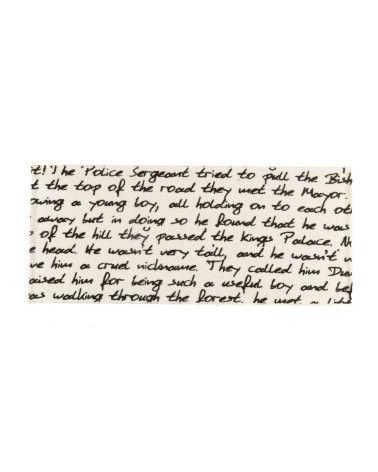 t! The Police Sergeant tried to pull the Bish
t the top of the road they met the Mayor.
owing a young boy, all holding on to each oth
away but in doing so he found that he was
of the hill they passed the Kings Palace. N
e head. He wasn't very tall, and he wasn't v
ve him a cruel nickname. They called him Du
aised him for being such a useful boy and bef
as walking through the forest, he met a litt